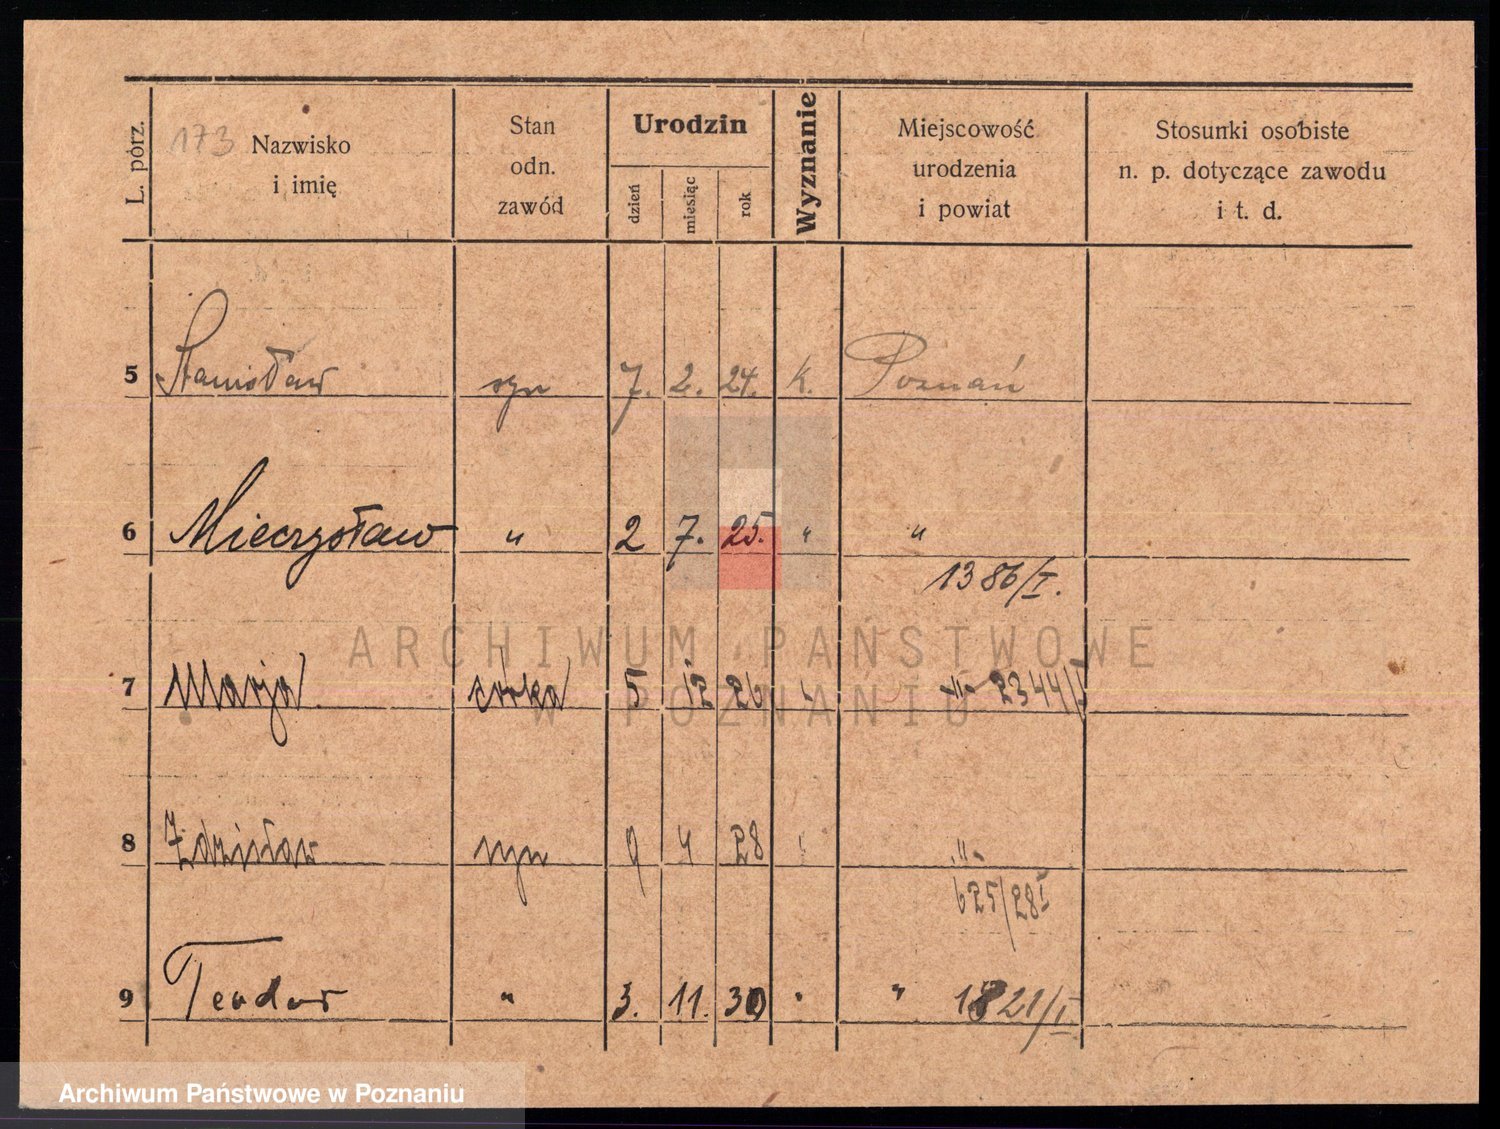 L. porz.
173
Nazwisko
i imię
Stan
odn.
zawód
Urodzin
dzień
miesiąc
rok
Wyznanie
Miejscowość
urodzenia
i powiat
Stosunki osobiste
n. p. dotyczące zawodu
i t. d.
5 Stanisław syn 7. 2. 24. k. Poznań
6 Mieczysław " 2 7. 25. " "
1386/I.
ARCHIWUM PAŃSTWOWE
7 Marja córka 5 12 26 " -"- 2344/I
W POZNANIU
8 Zdzisław syn 9 4 28 " -"-
625/28 I
9 Teodor " 3. 11. 30 " " 1821/I
Archiwum Państwowe w Poznaniu